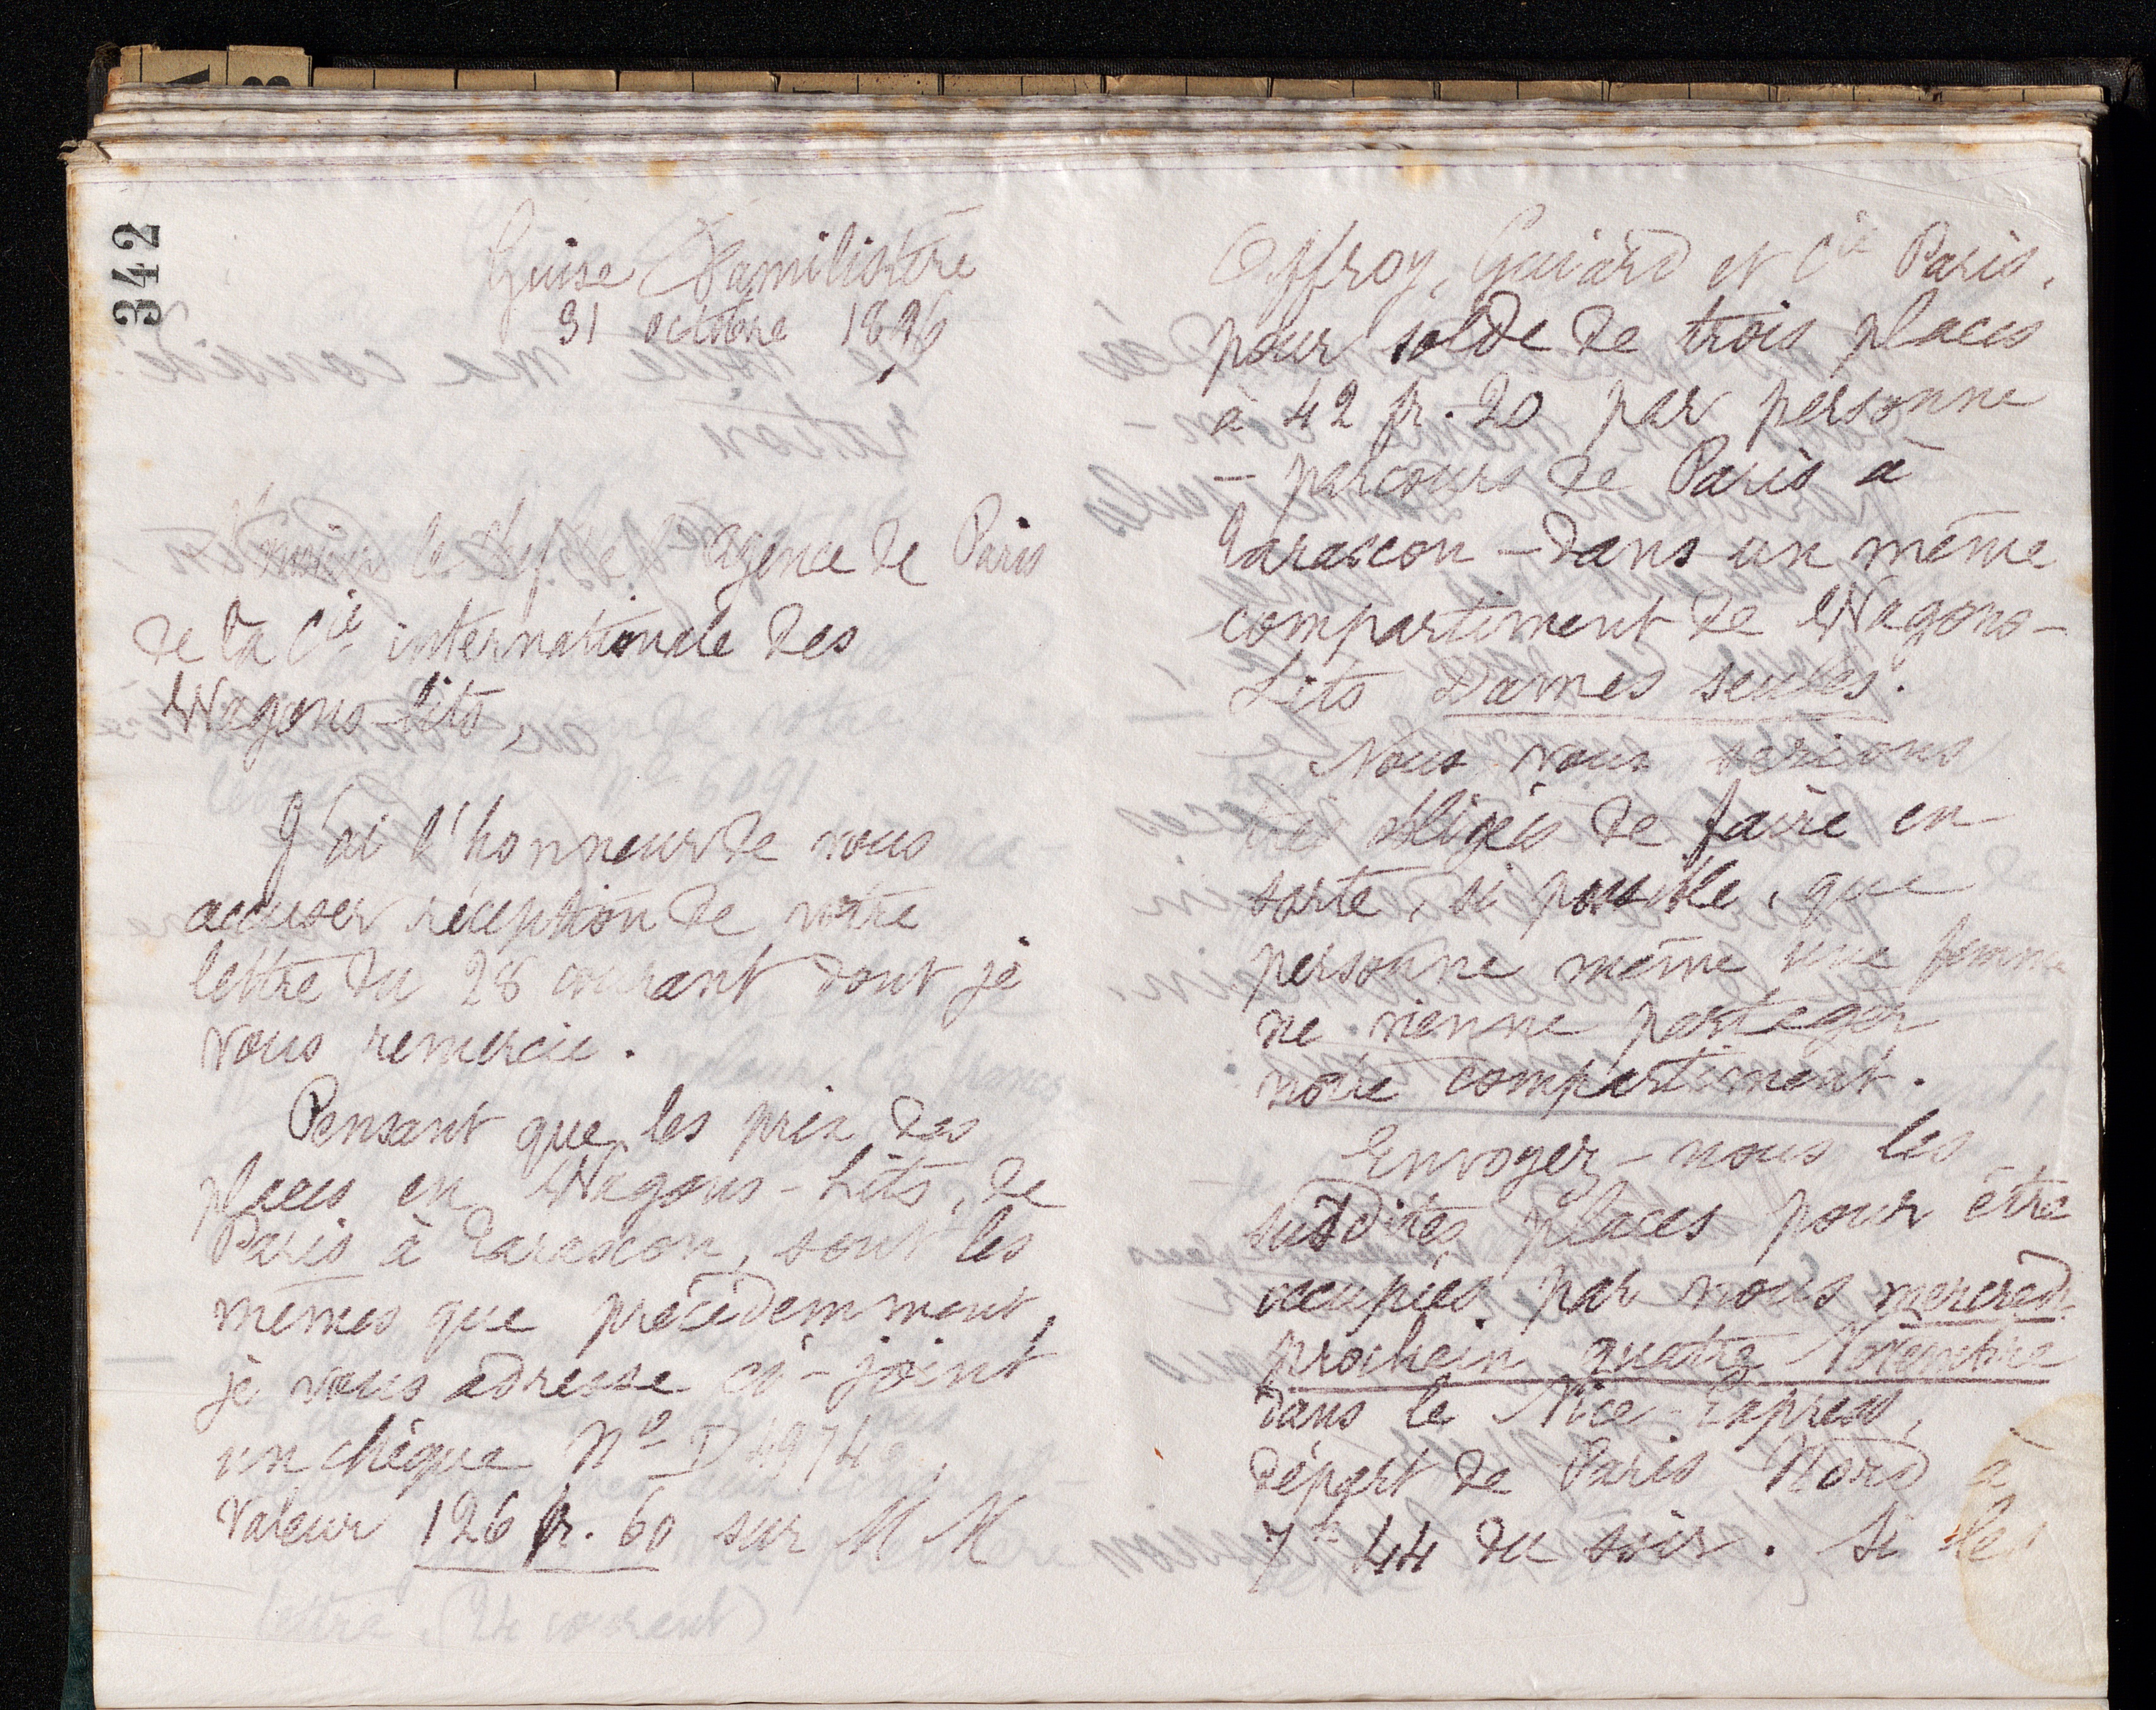 342
Guise Familistère
31 octobre 1896
Monsieur le chef de l'agence de Paris
de la Cie internationale des
Wagons-Lits,
J'ai l'honneur de vous
accuser réception de votre
lettre du 28 courant dont je
vous remercie.
Pensant que les prix des
places en Wagons-Lits, de
Paris à Tarascon, sont les
mêmes que précédemment,
je vous adresse ci-joint
un chèque No D
valeur 126 fr. 60 sur MM
Offroy, Guiard et Cie Paris.
pour solde de trois places
à 42 fr. 20 par personne
— parcours de Paris à
Tarascon — dans un même
compartiment de Wagons-
Lits Dames seules.
Nous vous serions
très obligés de faire en
sorte, si possible, que
personne même une femme
ne vienne partager
notre compartiment.
Envoyez-nous les
susdites places pour être
occupées par nous mercredi
prochain quatre Novembre
dans le Nice-Express,
départ de Paris Nord à
7h 44 du soir. Si les